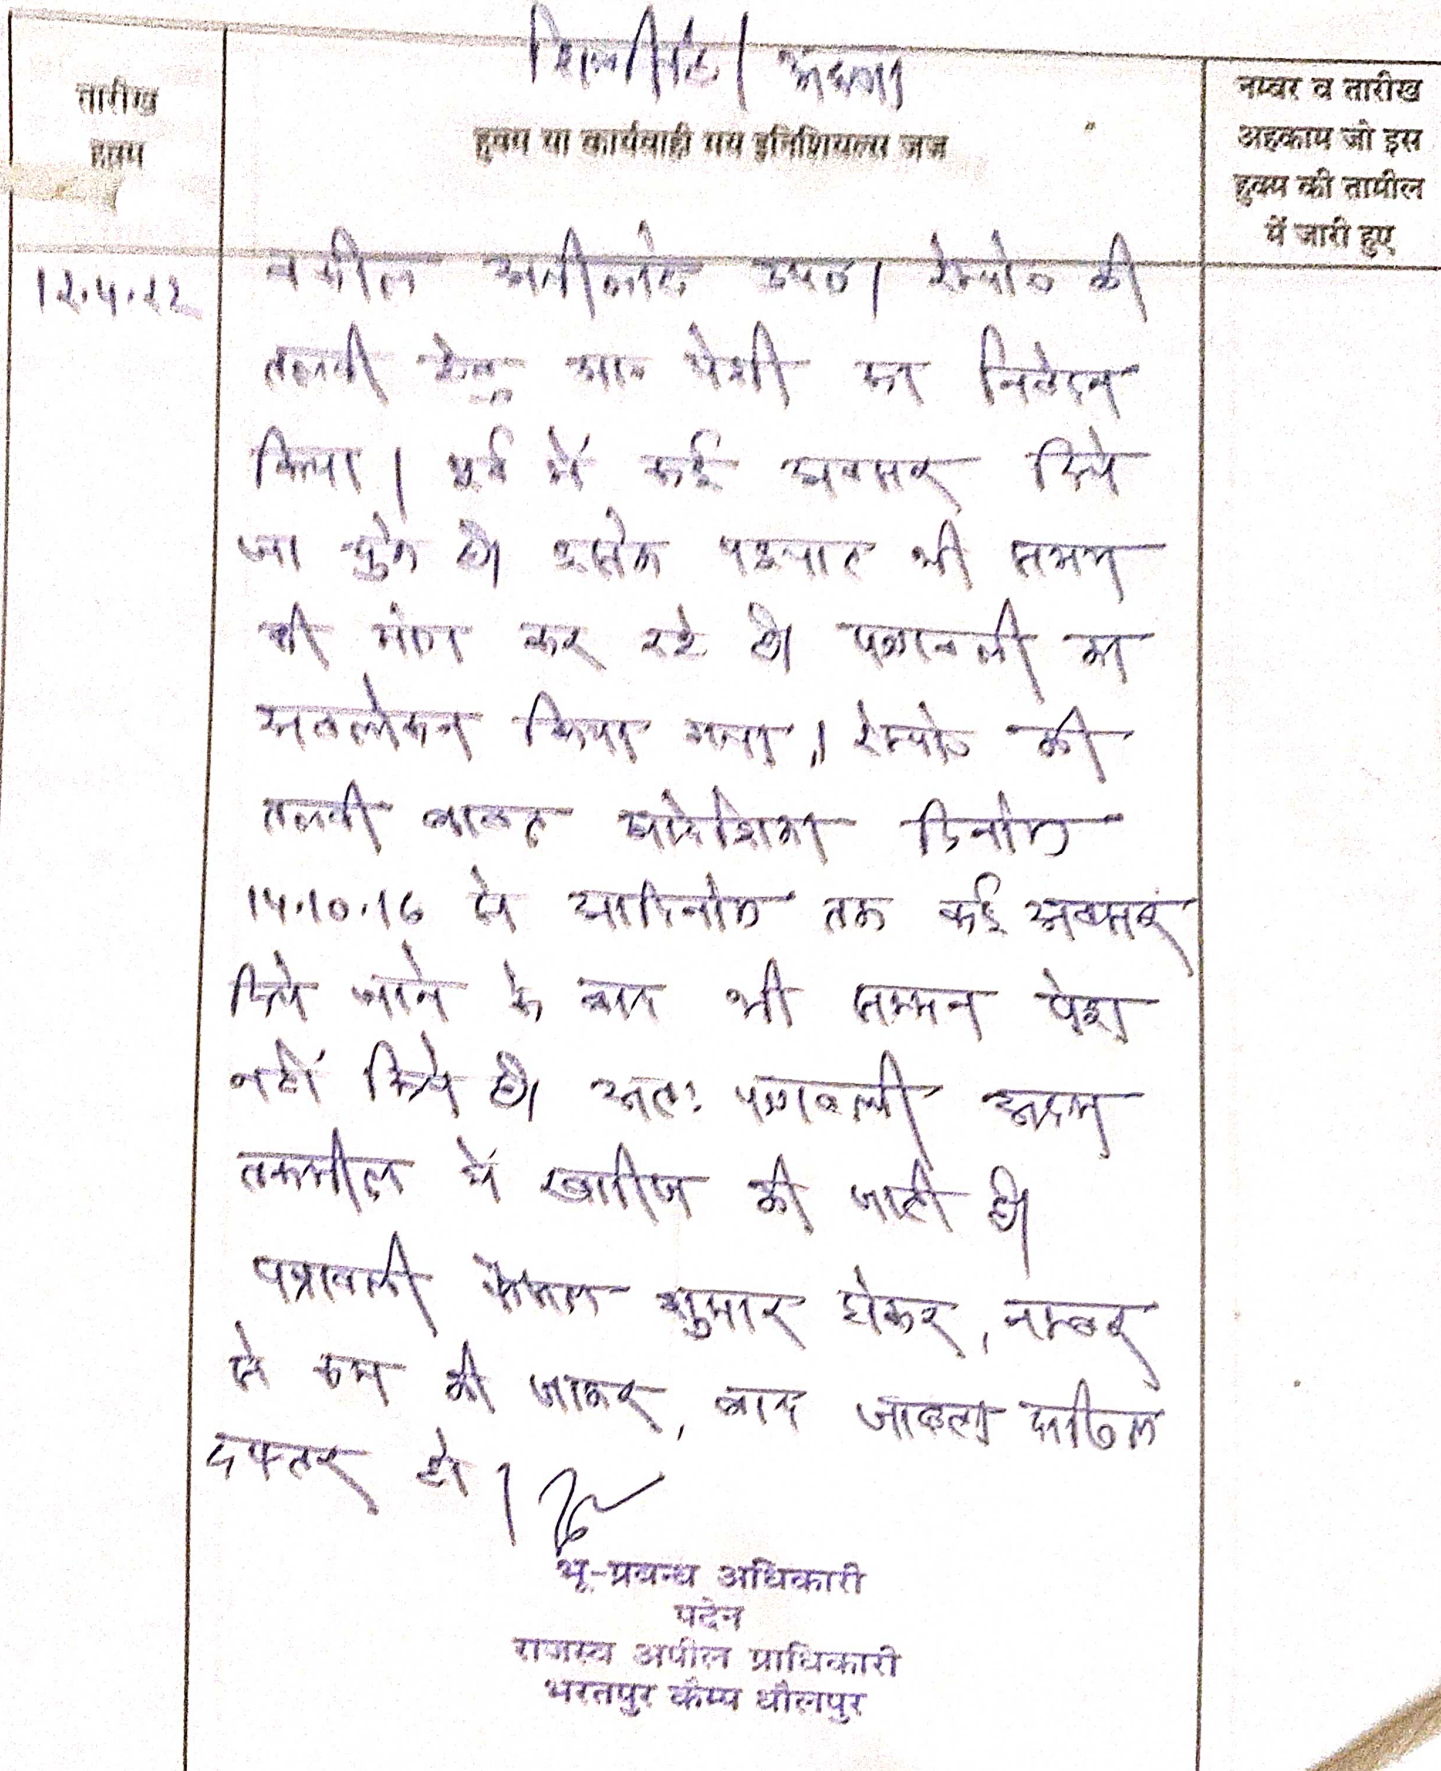 तारीख
हुक्म
हुक्म या कार्यवाही मय इनिशियल्स जज
नम्बर व तारीख
अहकाम जो इस
हुक्म की तामील
में जारी हुए
12.4.22
वकील अपीलांट उप०। रेस्पो० की
तलवी हेतु आम पेशी का निवेदन
किया। पूर्व में कई अवसर दिये
जा चुके है। इसके पश्चात भी समय
की मांग कर रहे है। पत्रावली का
अवलोकन किया गया। रेस्पो० की
तलवी बाबत आदेशिका दिनांक
14.10.16 से आदिनांक तक कई अवसर
दिये जाने के बाद भी सम्मन पेश
नहीं किये है। अतः पत्रावली अदम
तकमील में खारीज की जाती है।
पत्रावली फैसल शुमार होकर, नम्बर
से कम की जाकर, बाद जाब्ता दाखिल
दफ्तर हो।
भू-प्रबन्ध अधिकारी
पदेन
राजस्व अपील प्राधिकारी
भरतपुर कैम्प धौलपुर